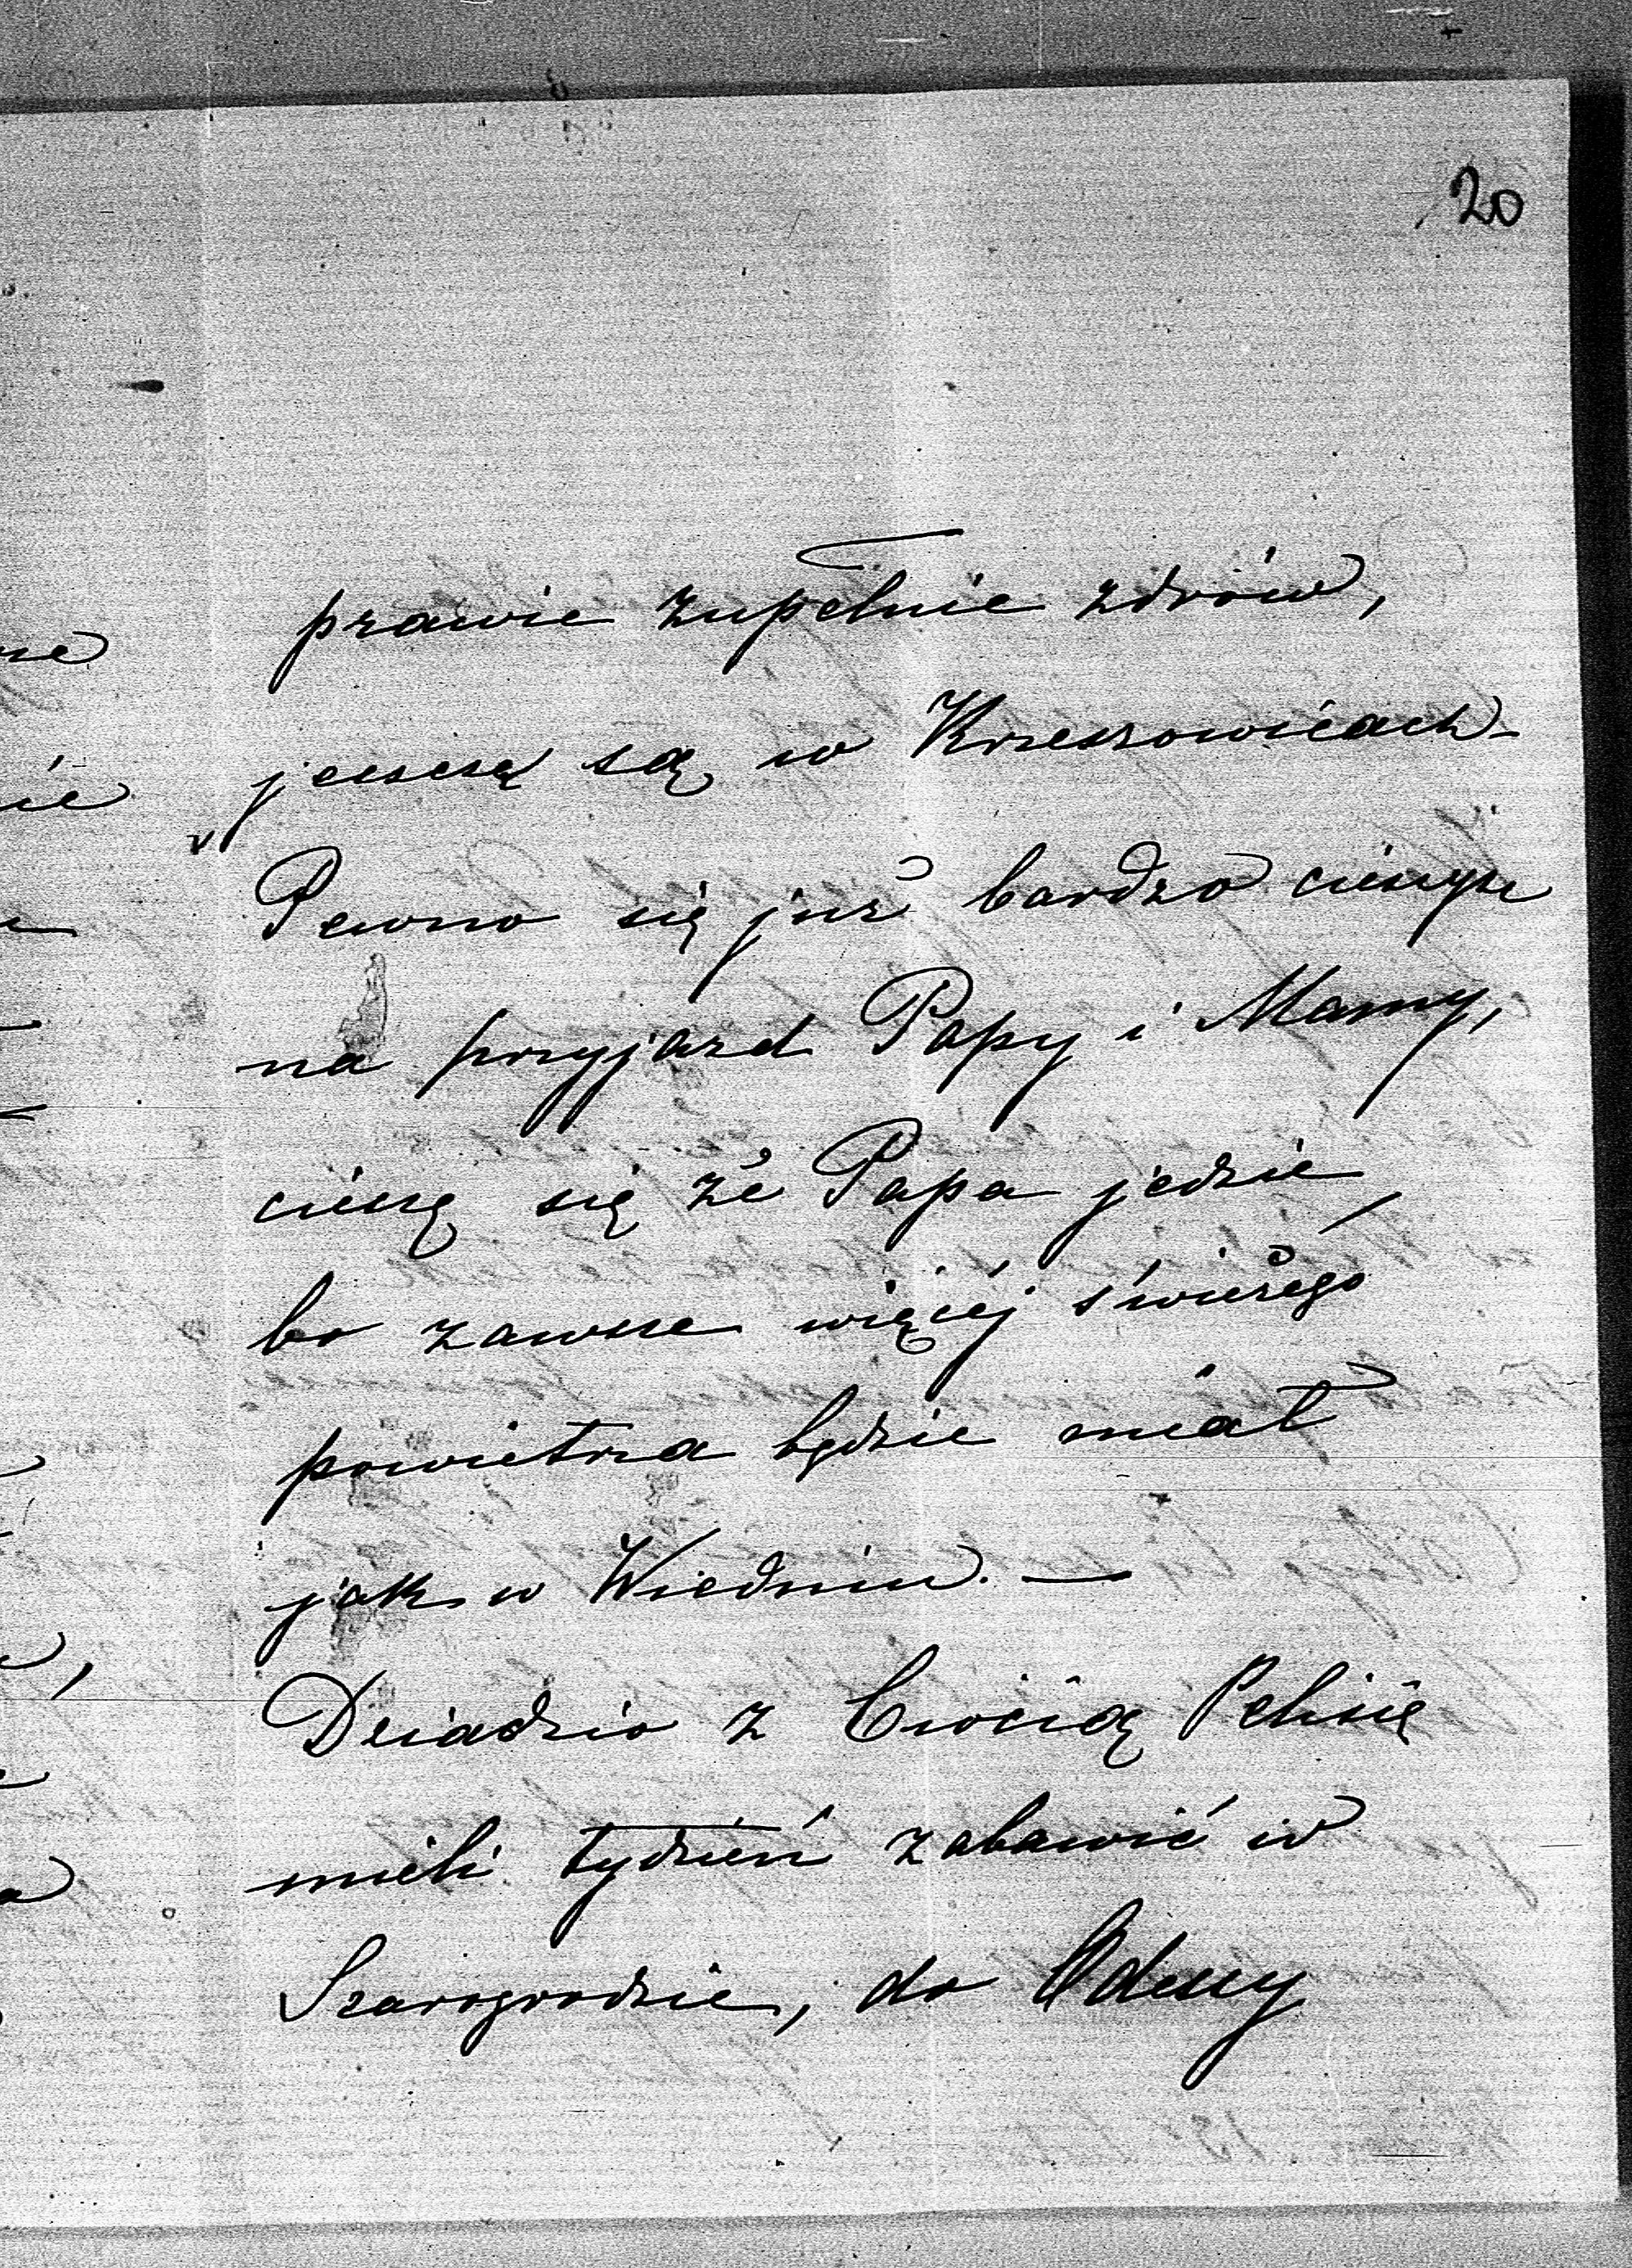 20
prawie zupełnie zdrów,
jeszcze są w Krzeszowicach –
Pewno się już bardzo cieszysz
na przyjazd Papy i Mamy,
cieszę się że Papa jedzie,
bo zawsze więcéj świeżego
powietrza będzie miał
jak w Wiedniu. —
Dziadzio z Ciocią Pelisię
mieli tydzień zabawić w
Szarogrodzie, do Odessy